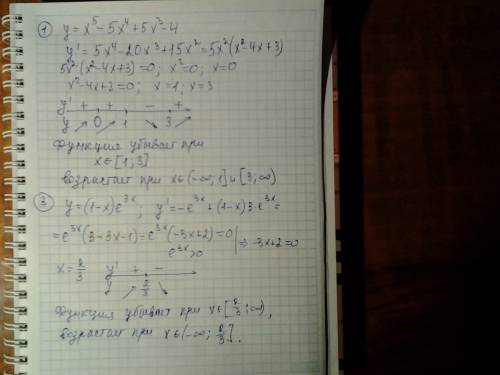 ① y = x⁵ - 5x⁴ + 5x³ - 4
y' = 5x⁴ - 20x³ + 15x² = 5x²(x² - 4x + 3)
5x²(x² - 4x + 3) = 0; x² = 0; x = 0
x² - 4x + 3 = 0; x = 1; x = 3
y' + + - +
y ↗ 0 ↗ 1 ↘ 3 ↗
Функция убывает при
x ∈ [1; 3]
возрастает при x ∈ (-∞; 1] u [3; ∞)
③ y = (1-x)e³ˣ; y' = -e³ˣ + (1-x)3·e³ˣ =
= e³ˣ(3-3x-1) = e³ˣ(-3x+2) = 0 | ⇒ -3x+2 = 0
e³ˣ > 0
x = 2/3 y' + -
y ↗ 2/3 ↘
Функция убывает при x ∈ [2/3; ∞),
возрастает при x ∈ (-∞; 2/3].